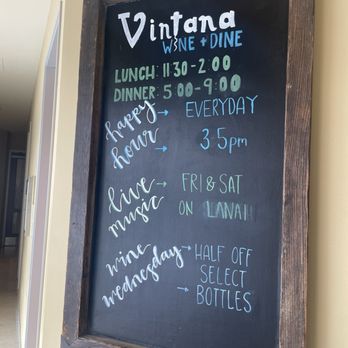 Vintana
WINE + DINE
LUNCH: 11:30-2:00
DINNER: 5:00-9:00
happy hour → EVERYDAY
3-5pm
live music → FRI & SAT
ON LANAI
wine wednesday → HALF OFF
→ SELECT
BOTTLES